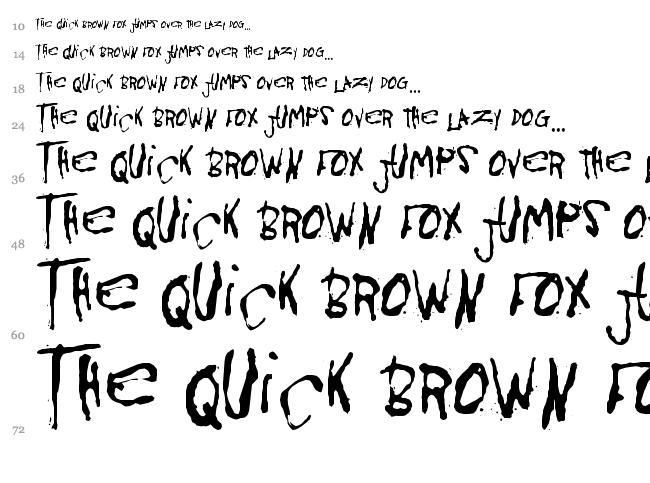 10 The quick brown fox jumps over the lazy dog...
14 The quick brown fox jumps over the lazy dog...
18 The quick brown fox jumps over the lazy dog...
24 The quick brown fox jumps over the lazy dog...
36 The quick brown fox jumps over the
48 The quick brown fox jumps o
60 The quick brown fox
72 The quick brown